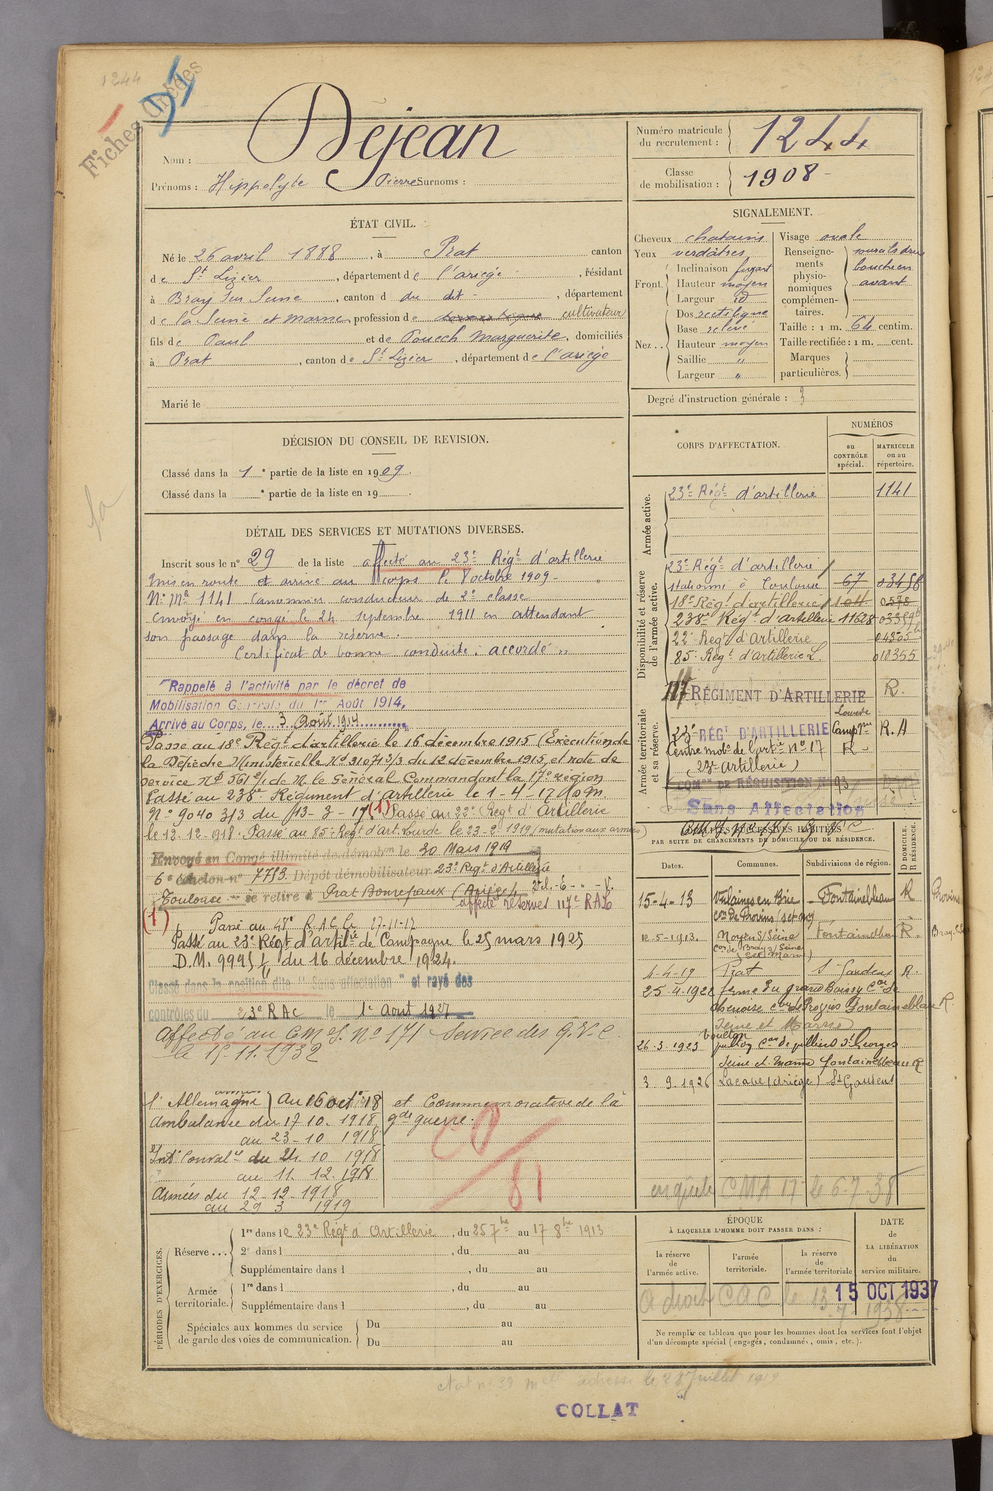 1244
Fiches Créées
Nom : Dejean
Prénoms : Hippolyte Pierre Surnoms :
Numéro matricule du recrutement : 1244
Classe de mobilisation : 1908
ÉTAT CIVIL.
Né le 26 avril 1888, à Prat canton
de St Lizier, département de l'ariège, résidant
à Bray sur Seine, canton d du dit, département
de la Seine et Marne, profession de cultivateur
fils de Paul et de Pouech Marguerite, domiciliés
à Prat, canton de St Lizier, département de l'ariège
Marié le
SIGNALEMENT.
Cheveux chatains
Yeux verdâtres
Front. Inclinaison fuyant
Hauteur moyen
Largeur id
Nez. Dos rectiligne
Base relevé
Hauteur moyen
Saillie "
Largeur "
Visage ovale
Renseignements physionomiques complémentaires.
avant
Taille : 1 m. 64 centim.
Taille rectifiée : 1 m. cent.
Marques particulières.
Degré d'instruction générale : 3
DÉCISION DU CONSEIL DE REVISION.
Classé dans la 1e partie de la liste en 1909.
Classé dans la e partie de la liste en 19
DÉTAIL DES SERVICES ET MUTATIONS DIVERSES.
Inscrit sous le n° 29 de la liste affecté au 23e Régt d'artillerie
Mis en route et arrivé au corps le 8 octobre 1909.
N° Mle 1141 Canonnier conducteur de 2e classe
Envoyé en congé le 24 septembre 1911 en attendant
son passage dans la réserve.
Certificat de bonne conduite : accordé
Rappelé à l'activité par le décret de
Mobilisation Générale du 1er Août 1914,
Arrivé au Corps, le 3 Août 1914
Passé au 18e Régt d'artillerie le 16 décembre 1915 (Exécution de
la Dépêche Ministérielle N° 31071 3/3 du 12 décembre 1915 et note de
service N° 561 c/. de M. le Général Commandant la 17e région
Passé au 238e Régiment d'artillerie le 1-4-17
N° 9040 3/3 du 13-3-17 (1) Passé au 22e Régt d'Artillerie
le 12-12-1918. Passé au 85e Régt d'art. Lourde le 23-2-1919 (mutation aux armées)
Envoyé en Congé illimité de démobon le 30 Mars 1919
6e échelon n° 7753 Dépôt démobilisateur 23e Régt d'Artillerie
Toulouse se retire à Prat Bonrepaux (Ariège)
affecté réserves 117e RAL
(1) Passé au 48e R.A.C. le 27-11-17
Passé au 23e Régt d'artie de Campagne le 25 mars 1925
D.M. 9995 du 16 décembre 1924.
Classé dans la position dite "Sans affectation" et rayé des
contrôles du 23e RAC le 1er Aout 1927
Affecté au C.M.I. N° 171 Service des G.V.C.
le 15.11.1932
CORPS D'AFFECTATION.
NUMÉROS
au CONTRÔLE spécial.
MATRICULE ou au répertoire.
Armée active.
23e Régt d'artillerie 1141
Disponibilité et réserve de l'armée active.
23e Régt d'artillerie
stationné à Toulouse 67 03456
18e Régt d'artillerie
238e Régt d'artillerie 11628
22e Régt d'artillerie
85e Régt d'artillerie L. 010355
Armée territoriale et sa réserve.
117 RÉGIMENT D'ARTILLERIE R.
Lourde
23e RÉGT D'ARTILLERIE Campne R.A
Centre mobe de l'artie N° 17 R
(23e Artillerie)
COMon DE RÉQUISITION N° 93
Sans Affectation
LOCALITÉS SUCCESSIVES HABITÉES
PAR SUITE DE CHANGEMENTS DE DOMICILE OU DE RÉSIDENCE.
Dates. Communes. Subdivisions de région. D DOMICILE. R RÉSIDENCE.
15-4-13 Vulaines en Brie Fontainebleau R
Con de Provins Set M
12-5-1913. Noyen S/Seine Fontainebleau R.
Con de Bray s/Seine
(Set Marne)
4-4-19 Prat St Gaudens R.
25.4.1921 ferme du grand Buisson Cne de
Chenoise con de Provins Fontainebleau R
Seine et Marne
26-3-1923 Voulton Con de Villiers St Georges
Seine et Marne Fontainebleau R
3.9.1926 Lacave (Ariège) St Gaudens
enquête CMA 17 6.7.38
c/ Allemagne armées au 16 octe 18
ambulance du 17 10. 1918
au 23-10 1918
Intr Convalce du 24 10 1918
au 11 12. 1918
Armées du 12-12-1918
au 29 3 1919
et Commémorative de la
gde guerre.
81
PÉRIODES D'EXERCICES.
Réserve ... 1re dans le 23e Régt d'Artillerie, du 25 7bre au 17 8bre 1913
2e dans l , du au
Supplémentaire dans l , du au
Armée territoriale. 1re dans l , du au
Supplémentaire dans l , du au
Spéciales aux hommes du service de garde des voies de communication. Du au
Du au
ÉPOQUE
À LAQUELLE L'HOMME DOIT PASSER DANS :
la réserve de l'armée active.
l'armée territoriale.
la réserve de l'armée territoriale
DATE de LA LIBÉRATION du service militaire.
15 OCT 1937
A droit CAC le 13-7-1938
Ne remplir ce tableau que pour les hommes dont les services font l'objet
d'un décompte spécial (engagés, condamnés, omis, etc.).
COLLAT